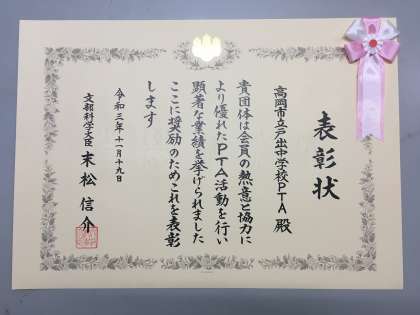 表彰状
高岡市立戸出中学校PTA殿
貴団体は会員の熱意と協力に
より優れたPTA活動を行い
顕著な業績を挙げられました
ここに奨励のためこれを表彰
します
令和三年十一月十九日
文部科学大臣 末松信介